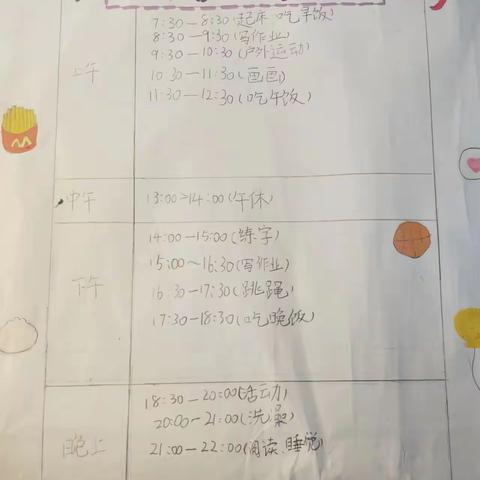 上午
7:30—8:30(起床 吃早饭)
8:30—9:30(写作业)
9:30—10:30(户外运动)
10:30—11:30(画画)
11:30—12:30(吃午饭)
中午
13:00~14:00(午休)
下午
14:00—15:00(练字)
15:00~16:30(写作业)
16:30—17:30(跳绳)
17:30—18:30(吃晚饭)
晚上
18:30—20:00(活动)
20:00—21:00(洗澡)
21:00—22:00(阅读、睡觉)